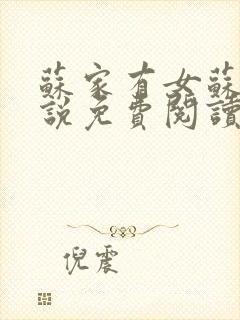 蘇家有女蘇
說免費閱讀
倪震